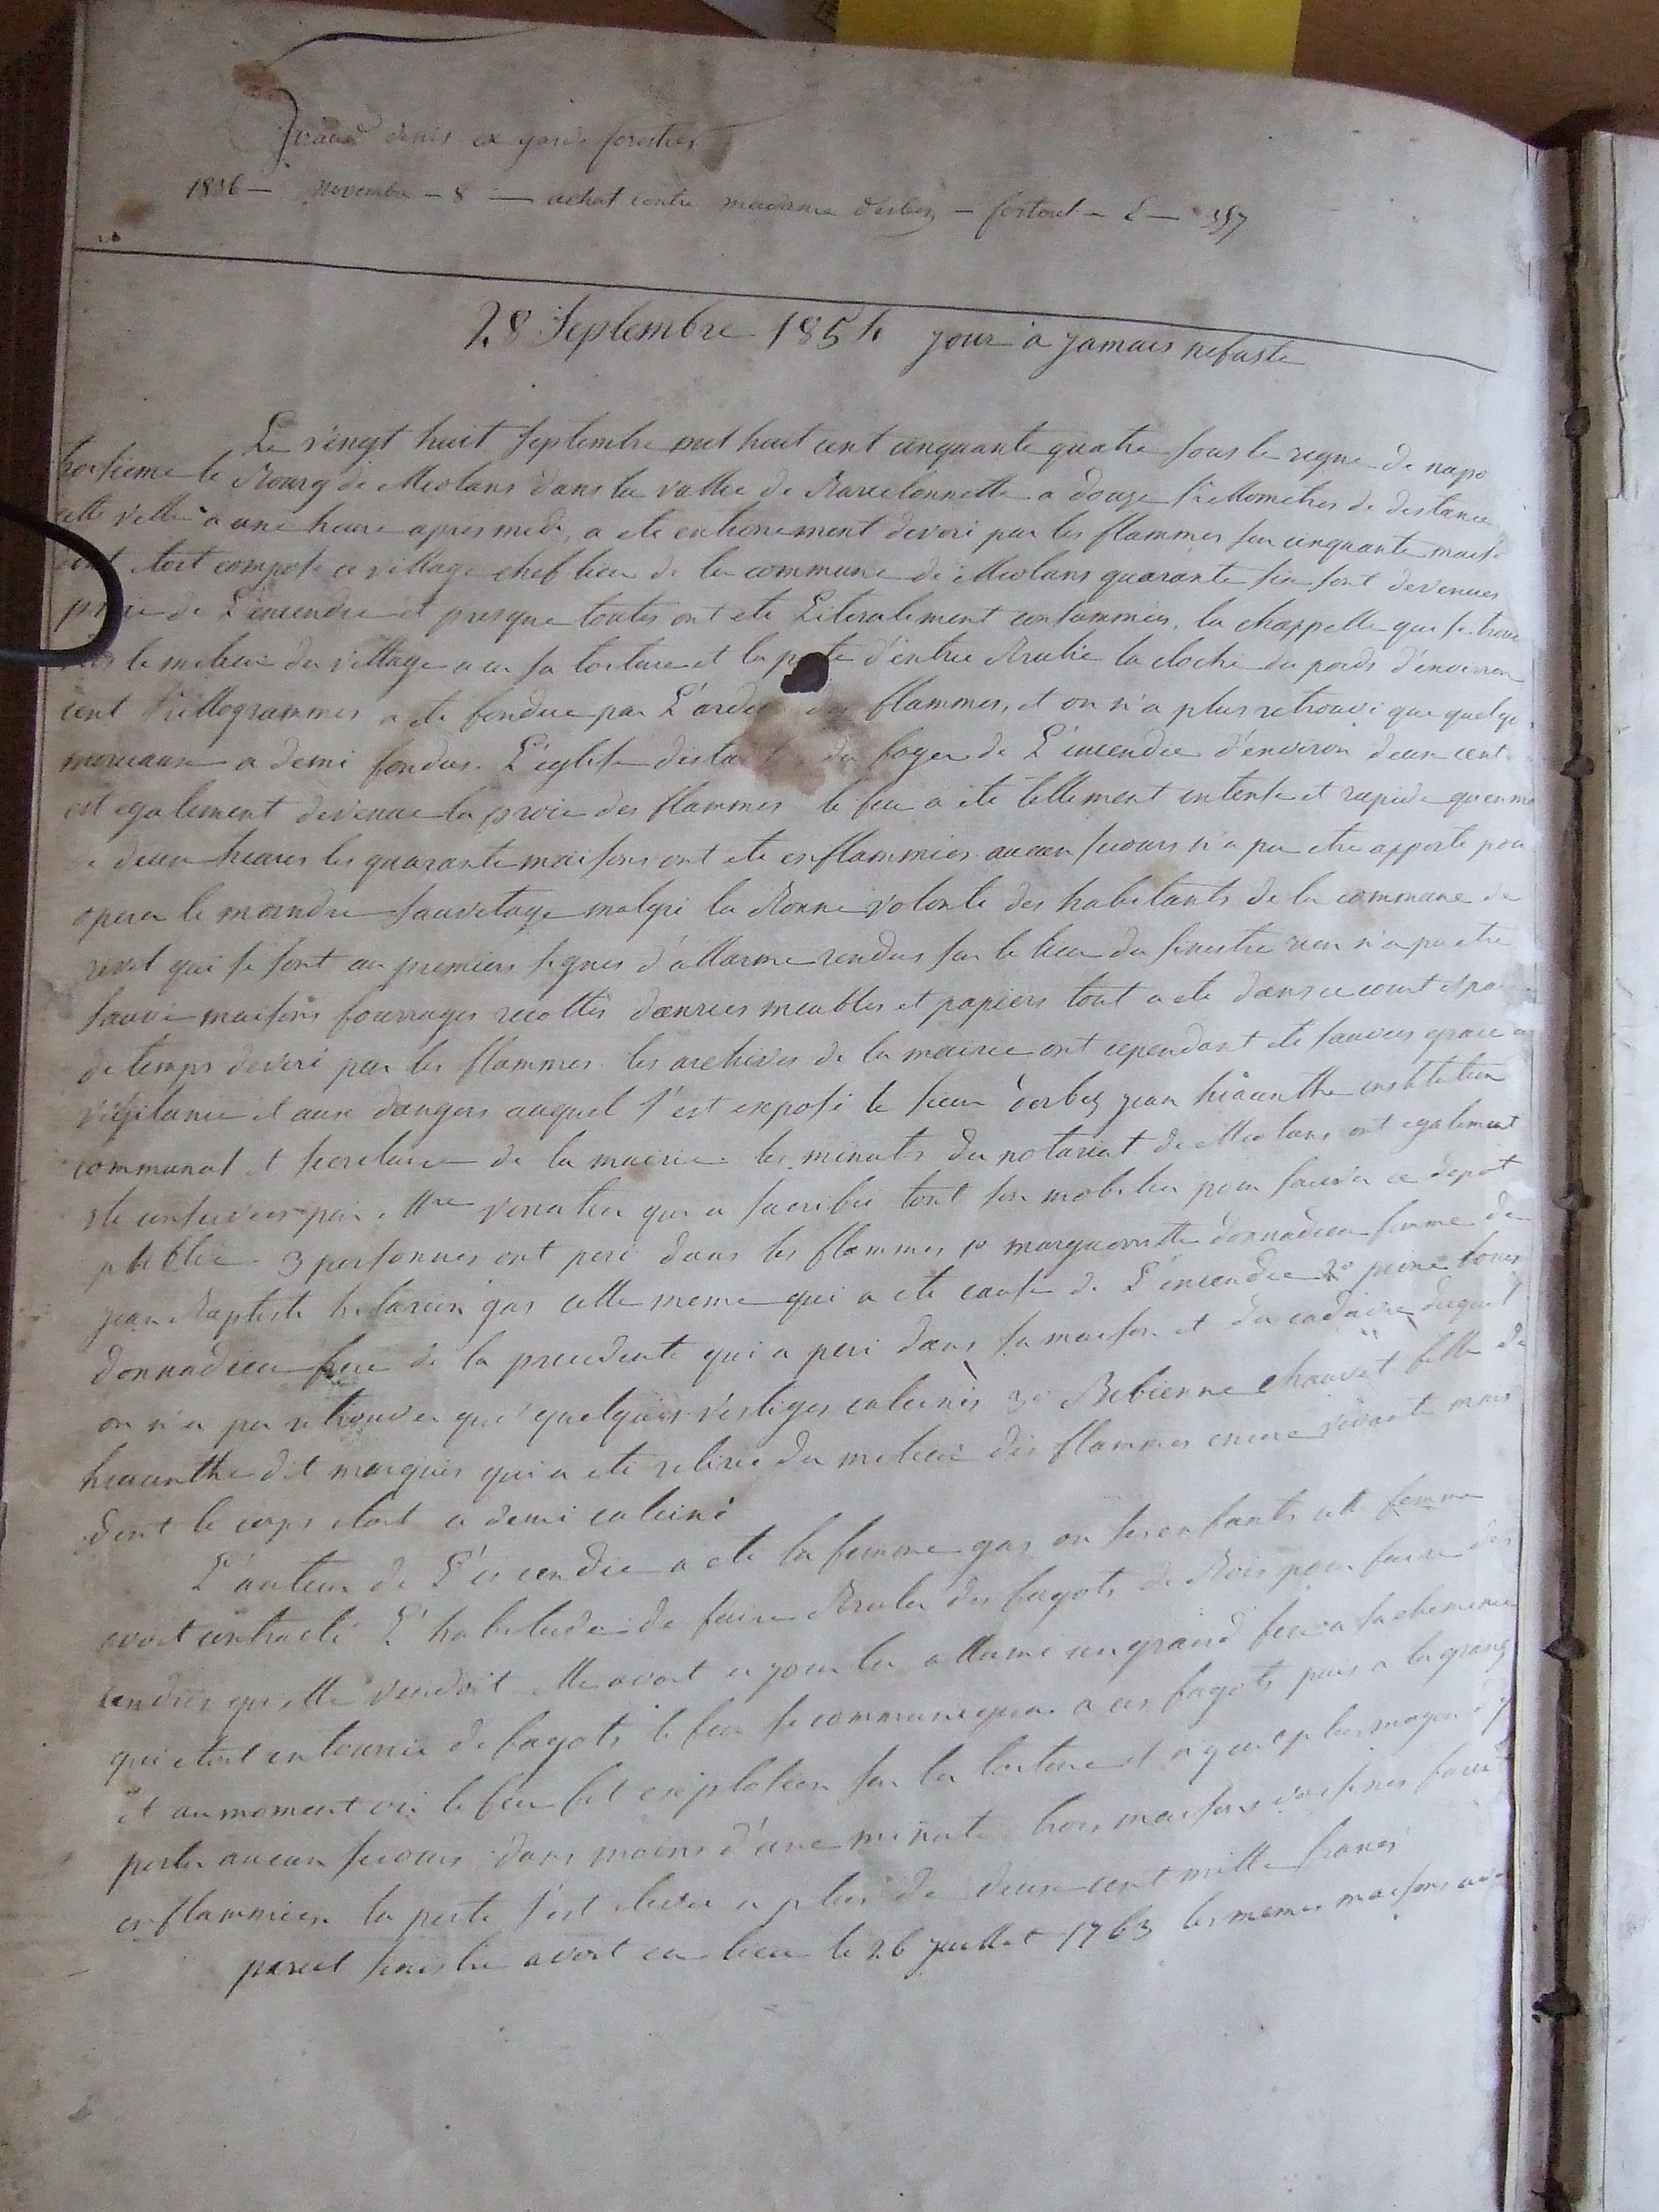 denis ex garde forestier
1836 — novembre — 8 — achat contre madame derbez — fortoul — £ — 357
28 Septembre 1854 jour à jamais nefaste
Le vingt huit Septembre mil huit cent cinquante quatre sous le regne de napo
troisieme le Bourg de Meolans dans la vallée de Barcelonnette a douze killometres de distance
cette ville a une heure apres midi, a ete entierement devoré par les flammes sur cinquante maiso
dont etoit composé ce village chef lieu de la commune de Meolans quarante six sont devenues
proie de L'incendie et presque toutes ont ete Literalement consummées, la chappelle qui se trouve
le milieu du village a eu sa toiture et la porte d'entrée Brulée la cloche du poids d'environ
cent killogrammes a ete fondue par L'ardeur des flammes, et on n'a plus retrouvé que quelques
morceaux a demi fondus. L'eglise distante du foyer de L'incendie d'environ deux cent
est egalement devenue la proie des flammes le feu a ete tellement intense et rapide qu'en mo
de deux heures les quarante maisons ont ete enflammées aucun secours n'a pu etre apporté pour
operer le moindre sauvetage malgré la Bonne volonté des habitants de la commune de
revel qui se sont au premiers signes d'allarme rendus sur le lieu du sinistre rien n'a pu etre
sauvé maisons fourrages recoltes danrées meubles et papiers tout a ete dans ce court espace
de temps devoré par les flammes. les archives de la mairie ont cependant ete sauvées grace a
vigilance et aux dangers auquel s'est exposé le sieur derbez jean hiacinthe instituteur
communal et secretaire de la mairie. les minutes du notariat de Meolans ont egalement
ete conservées par Mtre venateu qui a sacrifié tout son mobilier pour sauver ce depot
public. 3 personnes ont peri dans les flammes 1º margueritte donnadieu femme de
jean Baptiste hilarion gas celle meme qui a ete cause de L'incendie 2º louis
donnadieu frere de la precedente qui a peri dans sa maison et du cadavre duquel
on n'a pu retrouver que quelques vestiges calcinés 3º Bebienne chauvet fille de
hiacinthe dit marquis qui a eté retirée du milieu des flammes encore vivante mais
dont le corps etoit a demi calciné
L'auteur de L'incendie a ete la femme gas ou ses enfants cette femme
avoit contracté L'habitude de faire Bruler des fagots de Bois pour faire des
cendres qu'elle vendoit elle avoit ce jour la allumé un grand feu a sa cheminée
qui etoit entourée de fagots le feu se communiqua a ces fagots puis a la grange
et au moment où le feu fit explosion sur la toiture il n'y eut plus moyen d'y
porter aucun secours dans moins d'une minute trois maisons voisines furent
enflammées. la perte s'est elevée a plus de deux cent mille francs
pareil sinistre avoit eu lieu le 26 juillet 1763 les memes maisons